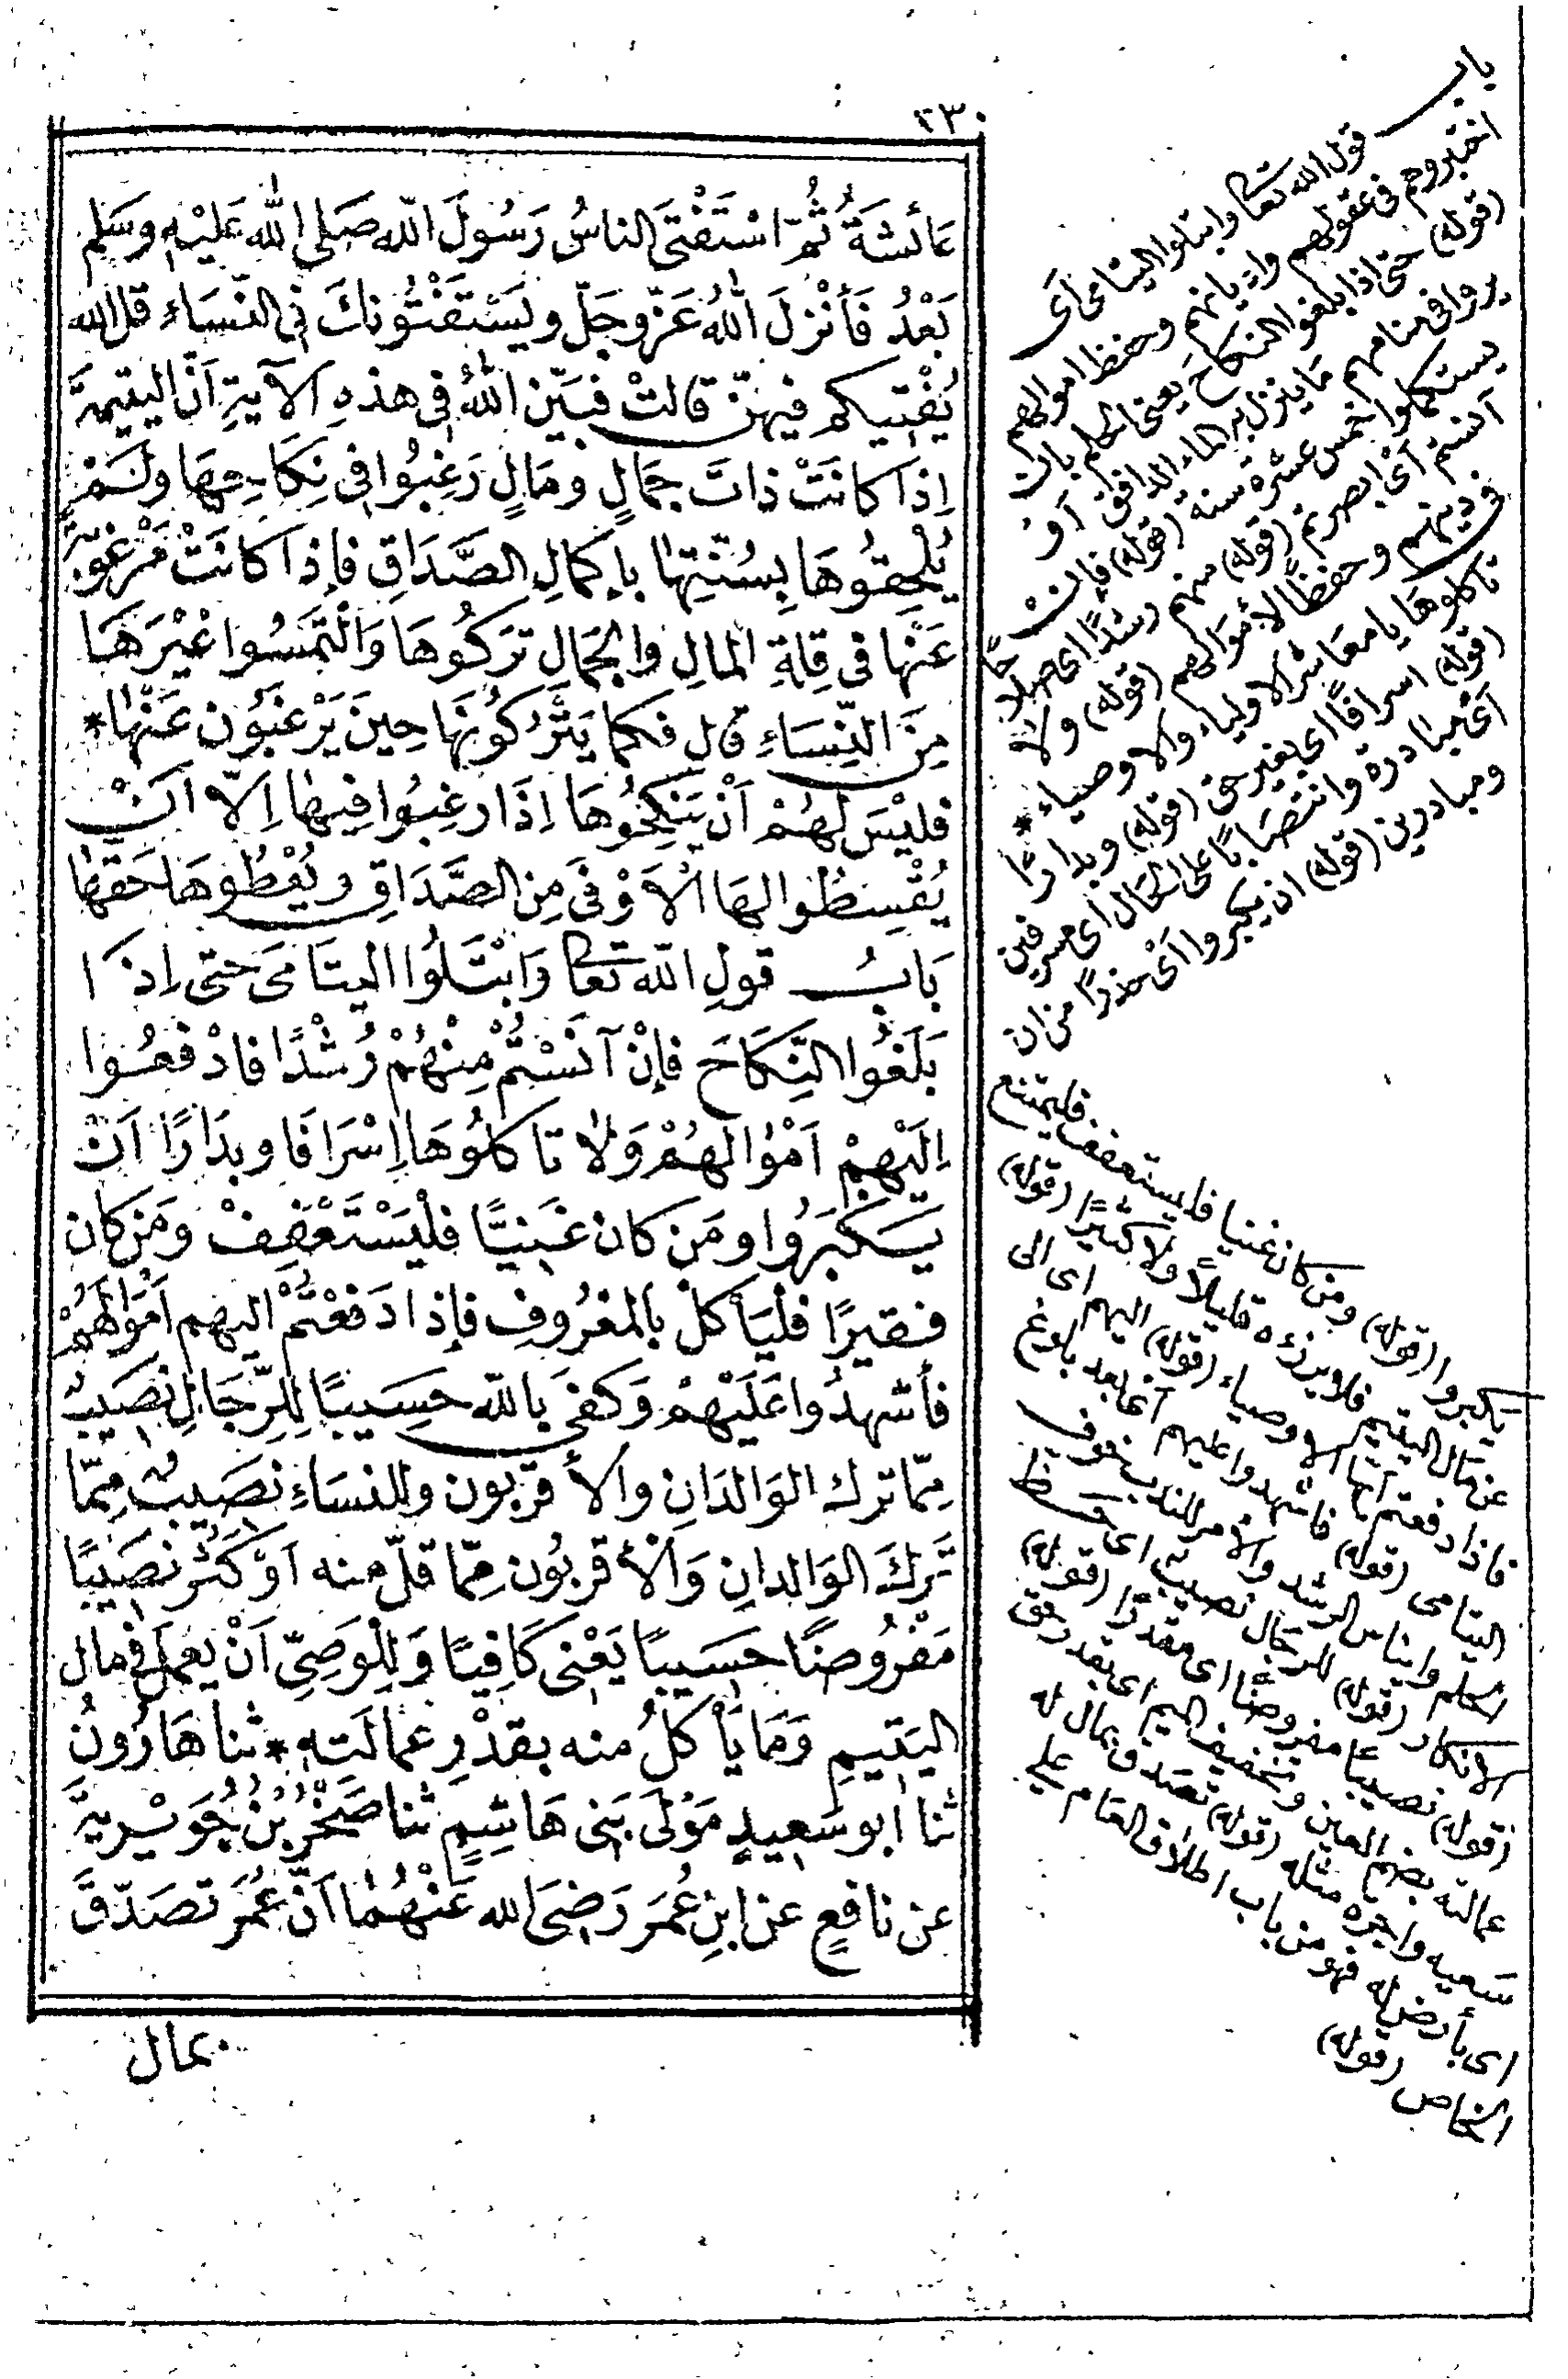 ٢٣٠
عَائشَةُ ثُمّ اسْتَفْتَى الناسُ رَسُولَ الله صَلى الله عَليْهِ وسَلم
بَعْدُ فَأَنْزلَ اللهُ عَزّ وجَلّ ويَسْتَفْتُونكَ فى النّسَاءِ قل الله
يُفْتِيكم فيهنّ قالتْ فبَيّن اللهُ فى هذهِ الآيةِ اَنّ اليَتيمةَ
اِذا كانَتْ ذاتَ جَمالٍ ومَالٍ رَغِبُوا فى نِكَاحِهَا ولَمْ
يُلْحِقُوهَا بِسُنّتِهَا بإكمالِ الصَّدَاقِ فإذا كانَتْ مَرْغوبَةً
عَنْها فى قِلةِ المالِ والجَمالِ ترَكُوهَا وَالْتَمَسُوا غيْرَهَا
مِنَ النِّسَاءِ قال فكما يَتْرُكُونَها حِينَ يَرْغبُون عَنْهَا*
فليْسَ لَهُمْ اَنْ يَنكِحُوهَا اِذَا رغِبُوا فِيهَا اِلّا اَنْ
يُقْسِطُوا لهَا الْاَوْفَى مِن الصَّدَاقِ ويُعْطُوهَا حَقّهَا
بَابُ قولِ الله تعَالى وَابْتَلُوا اليتَامَى حَتى اِذَا
بَلَغُوا النِّكَاحَ فإنْ آنَسْتُمْ مِنْهُمْ رُشْدًا فادْفعُوا
اِلَيْهِمْ اَمْوَالَهُمْ وَلَا تاكلُوهَا اِسْرَافًا وبدَارًا اَنْ
يَكْبَرُوا ومَن كان غَنِيًّا فلْيَسْتَعْفِفْ ومَن كان
فقيرًا فلْيَأكلْ بالمَعْرُوفِ فإذا دَفعْتُمْ اليهم اَمْوَالَهُمْ
فأشهدُوا عَلَيْهِمْ وَكفَى بالله حسَيبًا لِلرِّجَالِ نصَيبٌ
مِمّا ترك الوَالدَانِ والأقرَبون وللنسَاءِ نصَيبٌ مِمّا
تَرَكَ الوَالدانِ وَالْأقربُون مِمّا قلّ منه اَوْ كَثُرَ نصَيبًا
مَفْرُوضًا حسَيبًا يَعْنى كَافِيًا وَلِلْوَصِىِّ اَنْ يعمَلَ فى مال
اليَتِيمِ وَمَا يَأكلُ منه بقدْرِ عمالَتِهِ * ثنا هَارُونُ
ثنا ابو سَعِيدٍ مَوْلَى بَنى هَاشِمٍ ثنا صَخْرُ بْنُ جُوَيْريةَ
عن نافعٍ عن ابنِ عُمَرَ رَضِىَ الله عَنْهُمَا اَنّ عُمَرَ تصَدّقَ
بمال
باب قول الله تعالى وابتلوا اليتامى أى
اختبروهم فى عقولهم واديانهم وحفظ اموالهم
(قوله) حتى اذا بلغوا النكاح يعنى الحلم بان
يروا فى منامهم ما ينزل به الماء الدافق أو
يستكملوا خمس عشرة سنة (قوله) فإن
آنستم أى ابصرتم (قوله) منهم رشدًا اى صلاحًا
فى دينهم وحفظًا لأموالهم (قوله) ولا
تاكلوها يا معاشر الاولياء والاوصياء*
(قوله) اسرافًا اى بغير حق (قوله) وبدارًا
أى مبادرة وانتصابًا على الحال أى مسرفين
ومبادرين (قوله) ان يكبروا أى حذرًا من ان
يكبروا (قوله) ومن كان غنيا فليستعفف فليمتنع
عن مال اليتيم فلا يرزءه قليلًا ولا كثيرًا (قوله)
فاذا دفعتم ايها الاوصياء (قوله) اليهم اى الى
اليتامى (قوله) فاشهدوا عليهم أى بعد بلوغ
الحلم وايناس الرشد والأمر للندب خوف
الانكار (قوله) للرجال نصيب اى حظ
(قوله) نصيبا مفروضًا اى مقدرًا (قوله)
عمالته بضم العين وتخفيف الميم اى بقدر حق
سعيه واجره مثله (قوله) تصدق بمال له
اى بأرض له فهو من باب اطلاق العام على
الخاص (قوله)